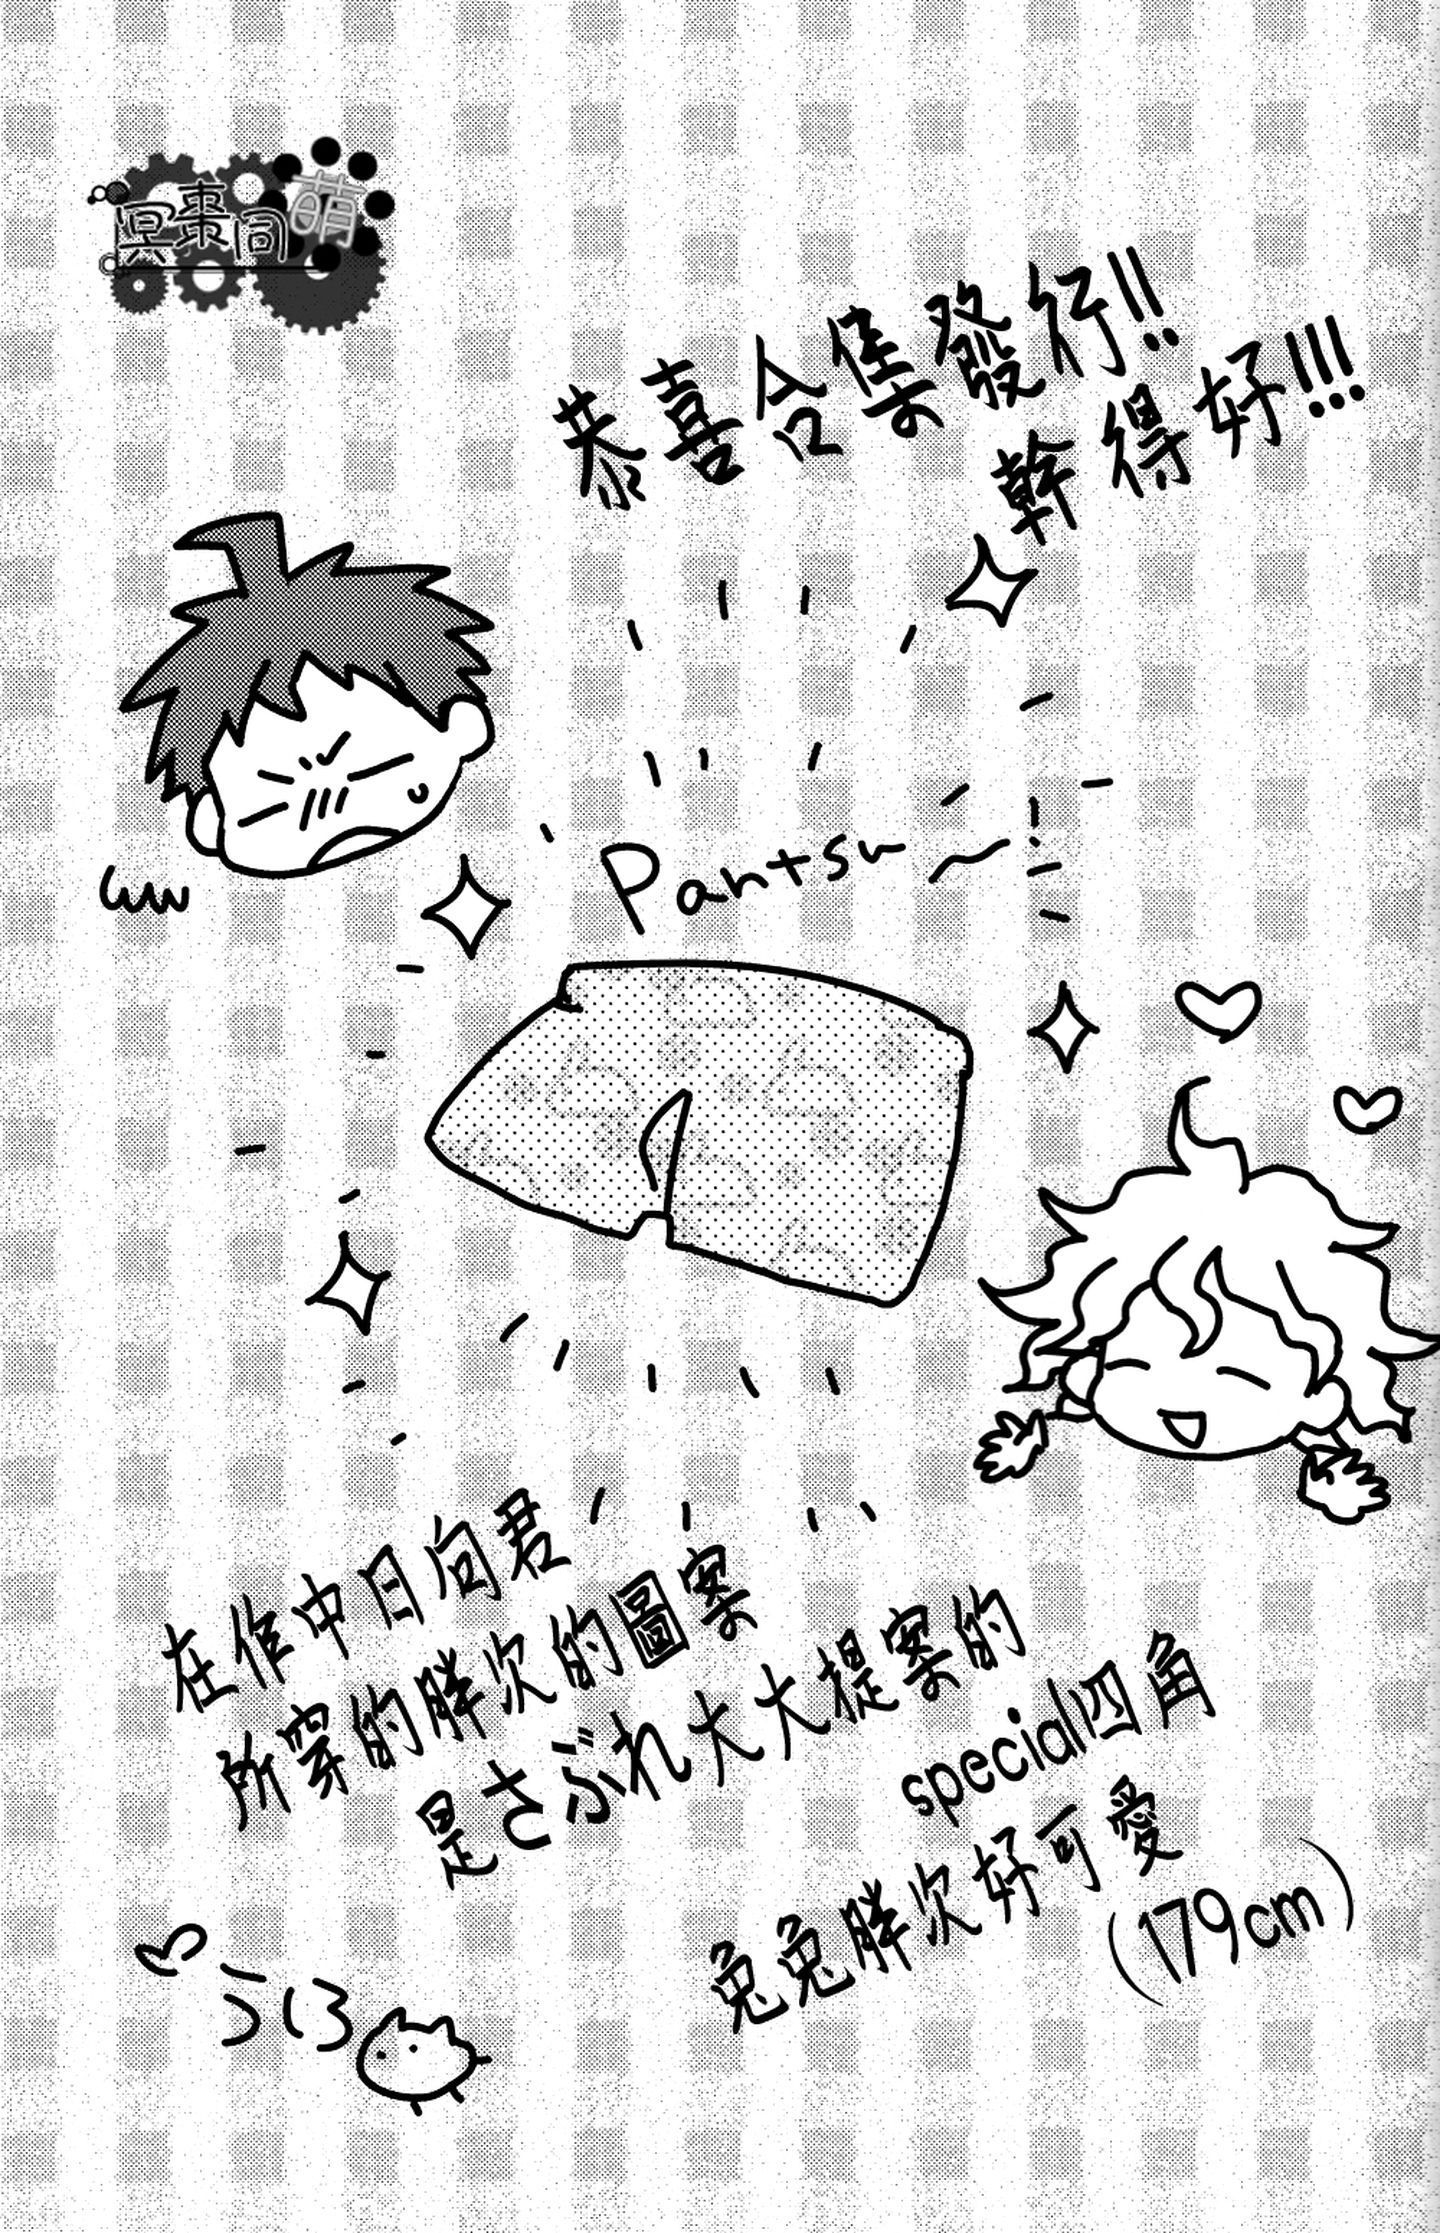 冥棗同萌
恭喜合集發行!!
幹得好!!!
Pantsu~!
在作中日向君
所穿的胖次的圖案
是さぶれ大大提案的
special四角
兔兔胖次好可愛
(179cm)